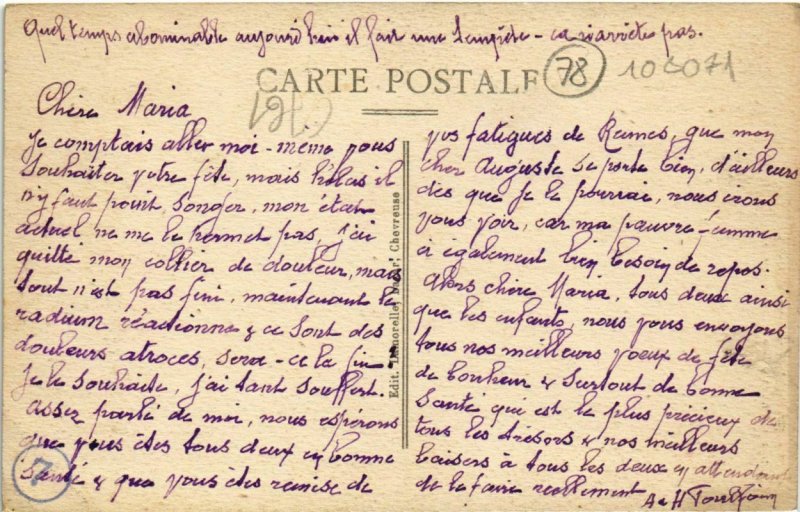 Quel temps abominable aujourd'hui il fait une tempête - ça n'arrête pas.
CARTE POSTALE
78
103071
Chère Maria
Je comptais aller moi-même vous
souhaiter votre fête, mais hélas il
n'y faut point songer, mon état
actuel ne me le permet pas, j'ai
quitté mon collier de douleur, mais
tout n'est pas fini, maintenant le
radium réactionne & ce sont des
douleurs atroces, sera-ce la fin
Je le souhaite, j'ai tant souffert.
Assez parlé de moi, nous espérons
que vous êtes tous deux en bonne
santé & que vous êtes remise de
Edit. Chevreuse
vos fatigues de Reims, que mon
cher Auguste se porte bien, d'ailleurs
dès que je le pourrai, nous irons
vous voir, car ma pauvre femme
a également bien besoin de repos.
Alors chère Maria, tous deux ainsi
que les enfants, nous vous envoyons
tous nos meilleurs vœux de fête
de bonheur & surtout de bonne
santé qui est le plus précieux de
tous les trésors & nos meilleurs
baisers à tous les deux en attendant
de le faire réellement
A & H